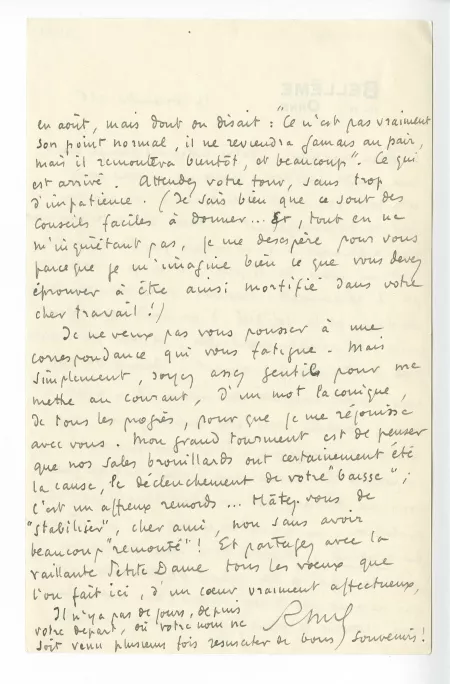 en août, mais dont on disait : "Ce n'est pas vraiment
son point normal, il ne reviendra jamais au pair,
mais il remontera bientôt, et beaucoup". Ce qui
est arrivé. Attendez votre tour, sans trop
d'impatience. (Je sais bien que ce sont des
conseils faciles à donner... Et, tout en ne
m'inquiétant pas, je me désespère pour vous
parce que je m'imagine bien ce que vous devez
éprouver à être ainsi mortifié dans votre
cher travail !)
Je ne veux pas vous pousser à une
correspondance qui vous fatigue. Mais
simplement, soyez assez gentil pour me
mettre au courant, d'un mot laconique,
de tous les progrès, pour que je me réjouisse
avec vous. Mon grand tourment est de penser
que nos sales brouillards ont certainement été
la cause, le déclenchement de votre "baisse" ;
c'est un affreux remords... Hâtez-vous de
"stabiliser", cher ami, non sans avoir
beaucoup "remonté" ! Et partagez avec la
vaillante Petite Dame tous les vœux que
l'on fait ici, d'un cœur vraiment affectueux,
Il n'y a pas de jours, depuis
votre départ, où votre nom ne
soit venu plusieurs fois ressusciter de bons souvenirs !
BELLÊME
ORNE